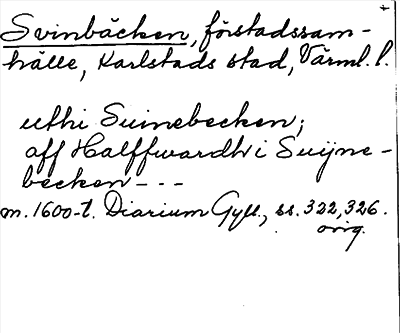 Svinbäcken, förstadssam-
hälle, Karlstads stad, Värml. l.
uthi Suinebecken;
aff Halffwardh i Suijne-
becken - - -
m. 1600-t. Diarium Gyll., ss. 322, 326.
orig.